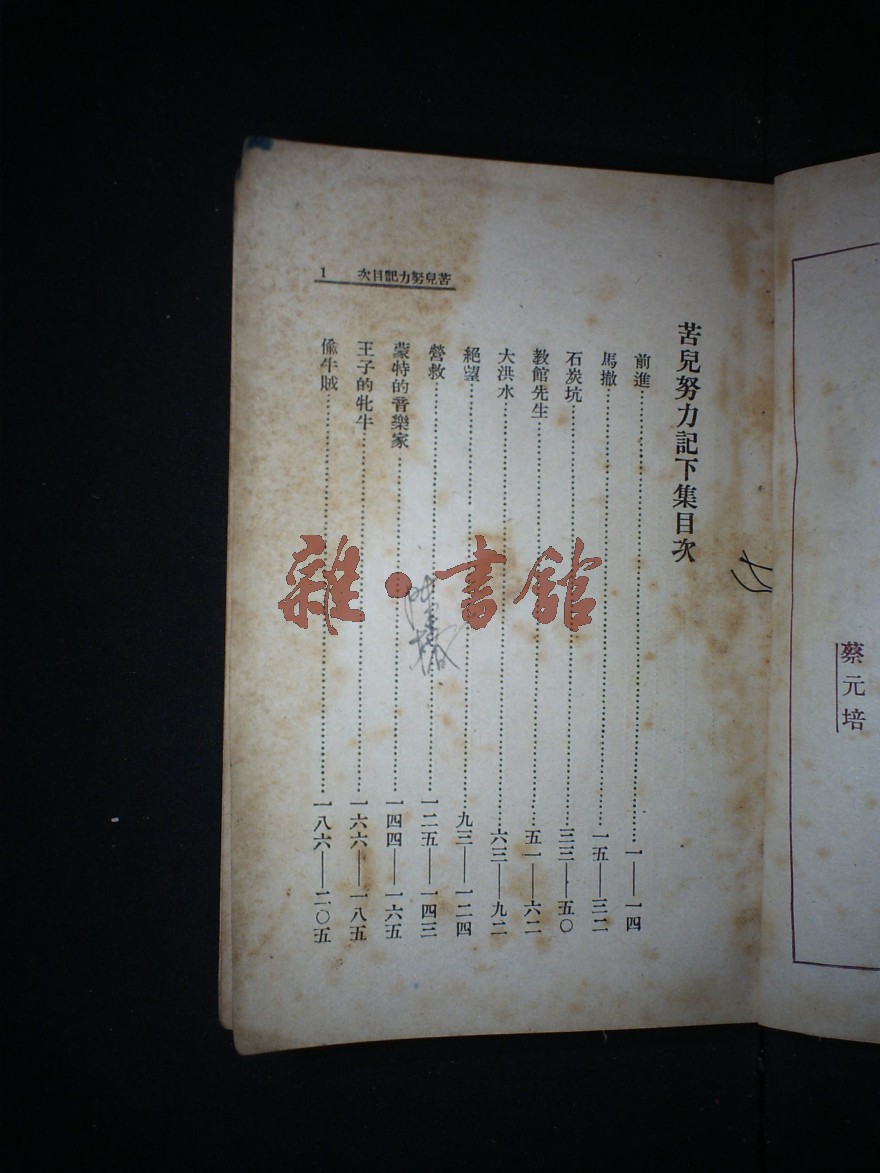 蔡元培
苦兒努力記下集目次
苦兒努力記目次 1
前進……一——一四
馬撒……一五——三二
石炭坑……三三——五〇
教館先生……五一——六二
大洪水……六三——九二
絕望……九三——一二四
營救……一二五——一四三
蒙特的音樂家……一四四——一六五
王子的牝牛……一六六——一八五
偸牛賊……一八六——二〇五
雜·書館